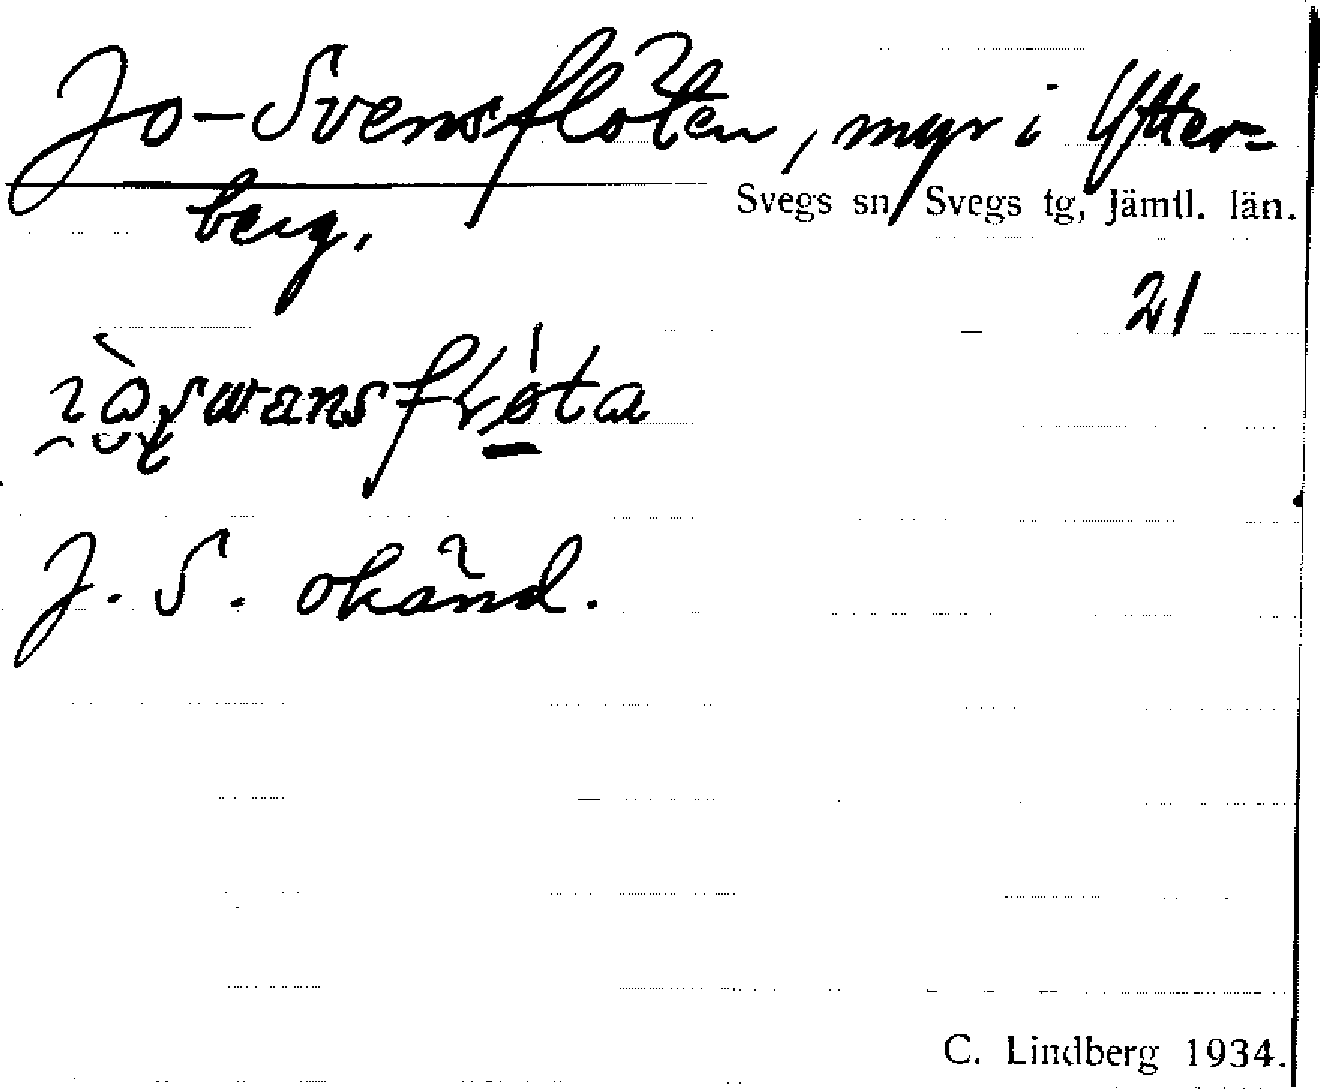 Jo-Svensflöten, myr i Ytter=
berg.
Svegs sn, Svegs tg, Jämtl. län.
21
J. S. okänd.
C. Lindberg 1934.